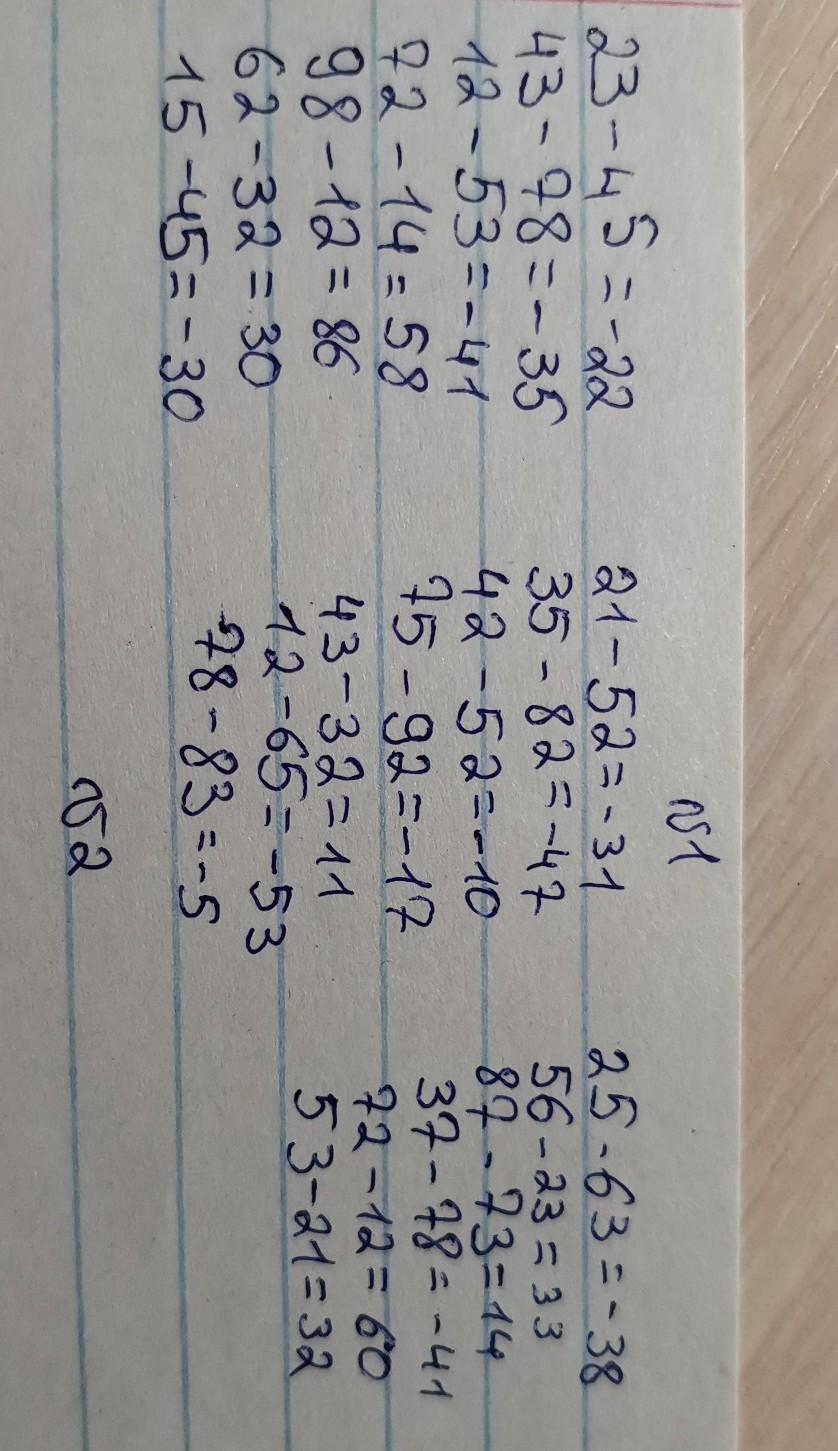 №1
23-45=-22 21-52=-31 25-63=-38
43-78=-35 35-82=-47 56-23=33
12-53=-41 42-52=-10 87-73=14
72-14=58 75-92=-17 37-78=-41
98-12=86 43-32=11 72-12=60
62-32=30 12-65=-53 53-21=32
15-45=-30 78-83=-5
№2